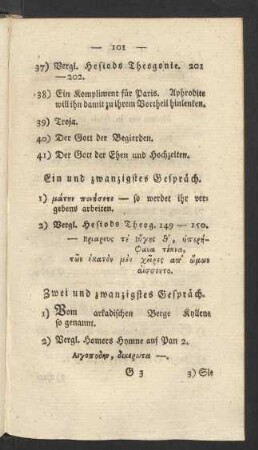 — 101 —
37) Vergl. Hesiods Theogonie. 201
—202.
38) Ein Kompliment für Paris. Aphrodite
will ihn damit zu ihrem Vortheil hinlenken.
39) Troja.
40) Der Gott der Begierden.
41) Der Gott der Ehen und Hochzeiten.
Ein und zwanzigstes Gespräch.
1) ματην πονησετε — so werdet ihr ver-
gebens arbeiten.
2) Vergl. Hesiods Theog. 149 — 150.
τέκνα,
τῶν ἑκατὸν μὲν χεῖρες απ' ὤμων
ἀΐσσοντο.
Zwei und zwanzigstes Gespräch.
1) Vom arkadischen Berge Kyllene
so genannt.
2) Vergl. Homers Hymne auf Pan 2.
Αιγοποδην, δικερωτα —.
G 3 3) Sie